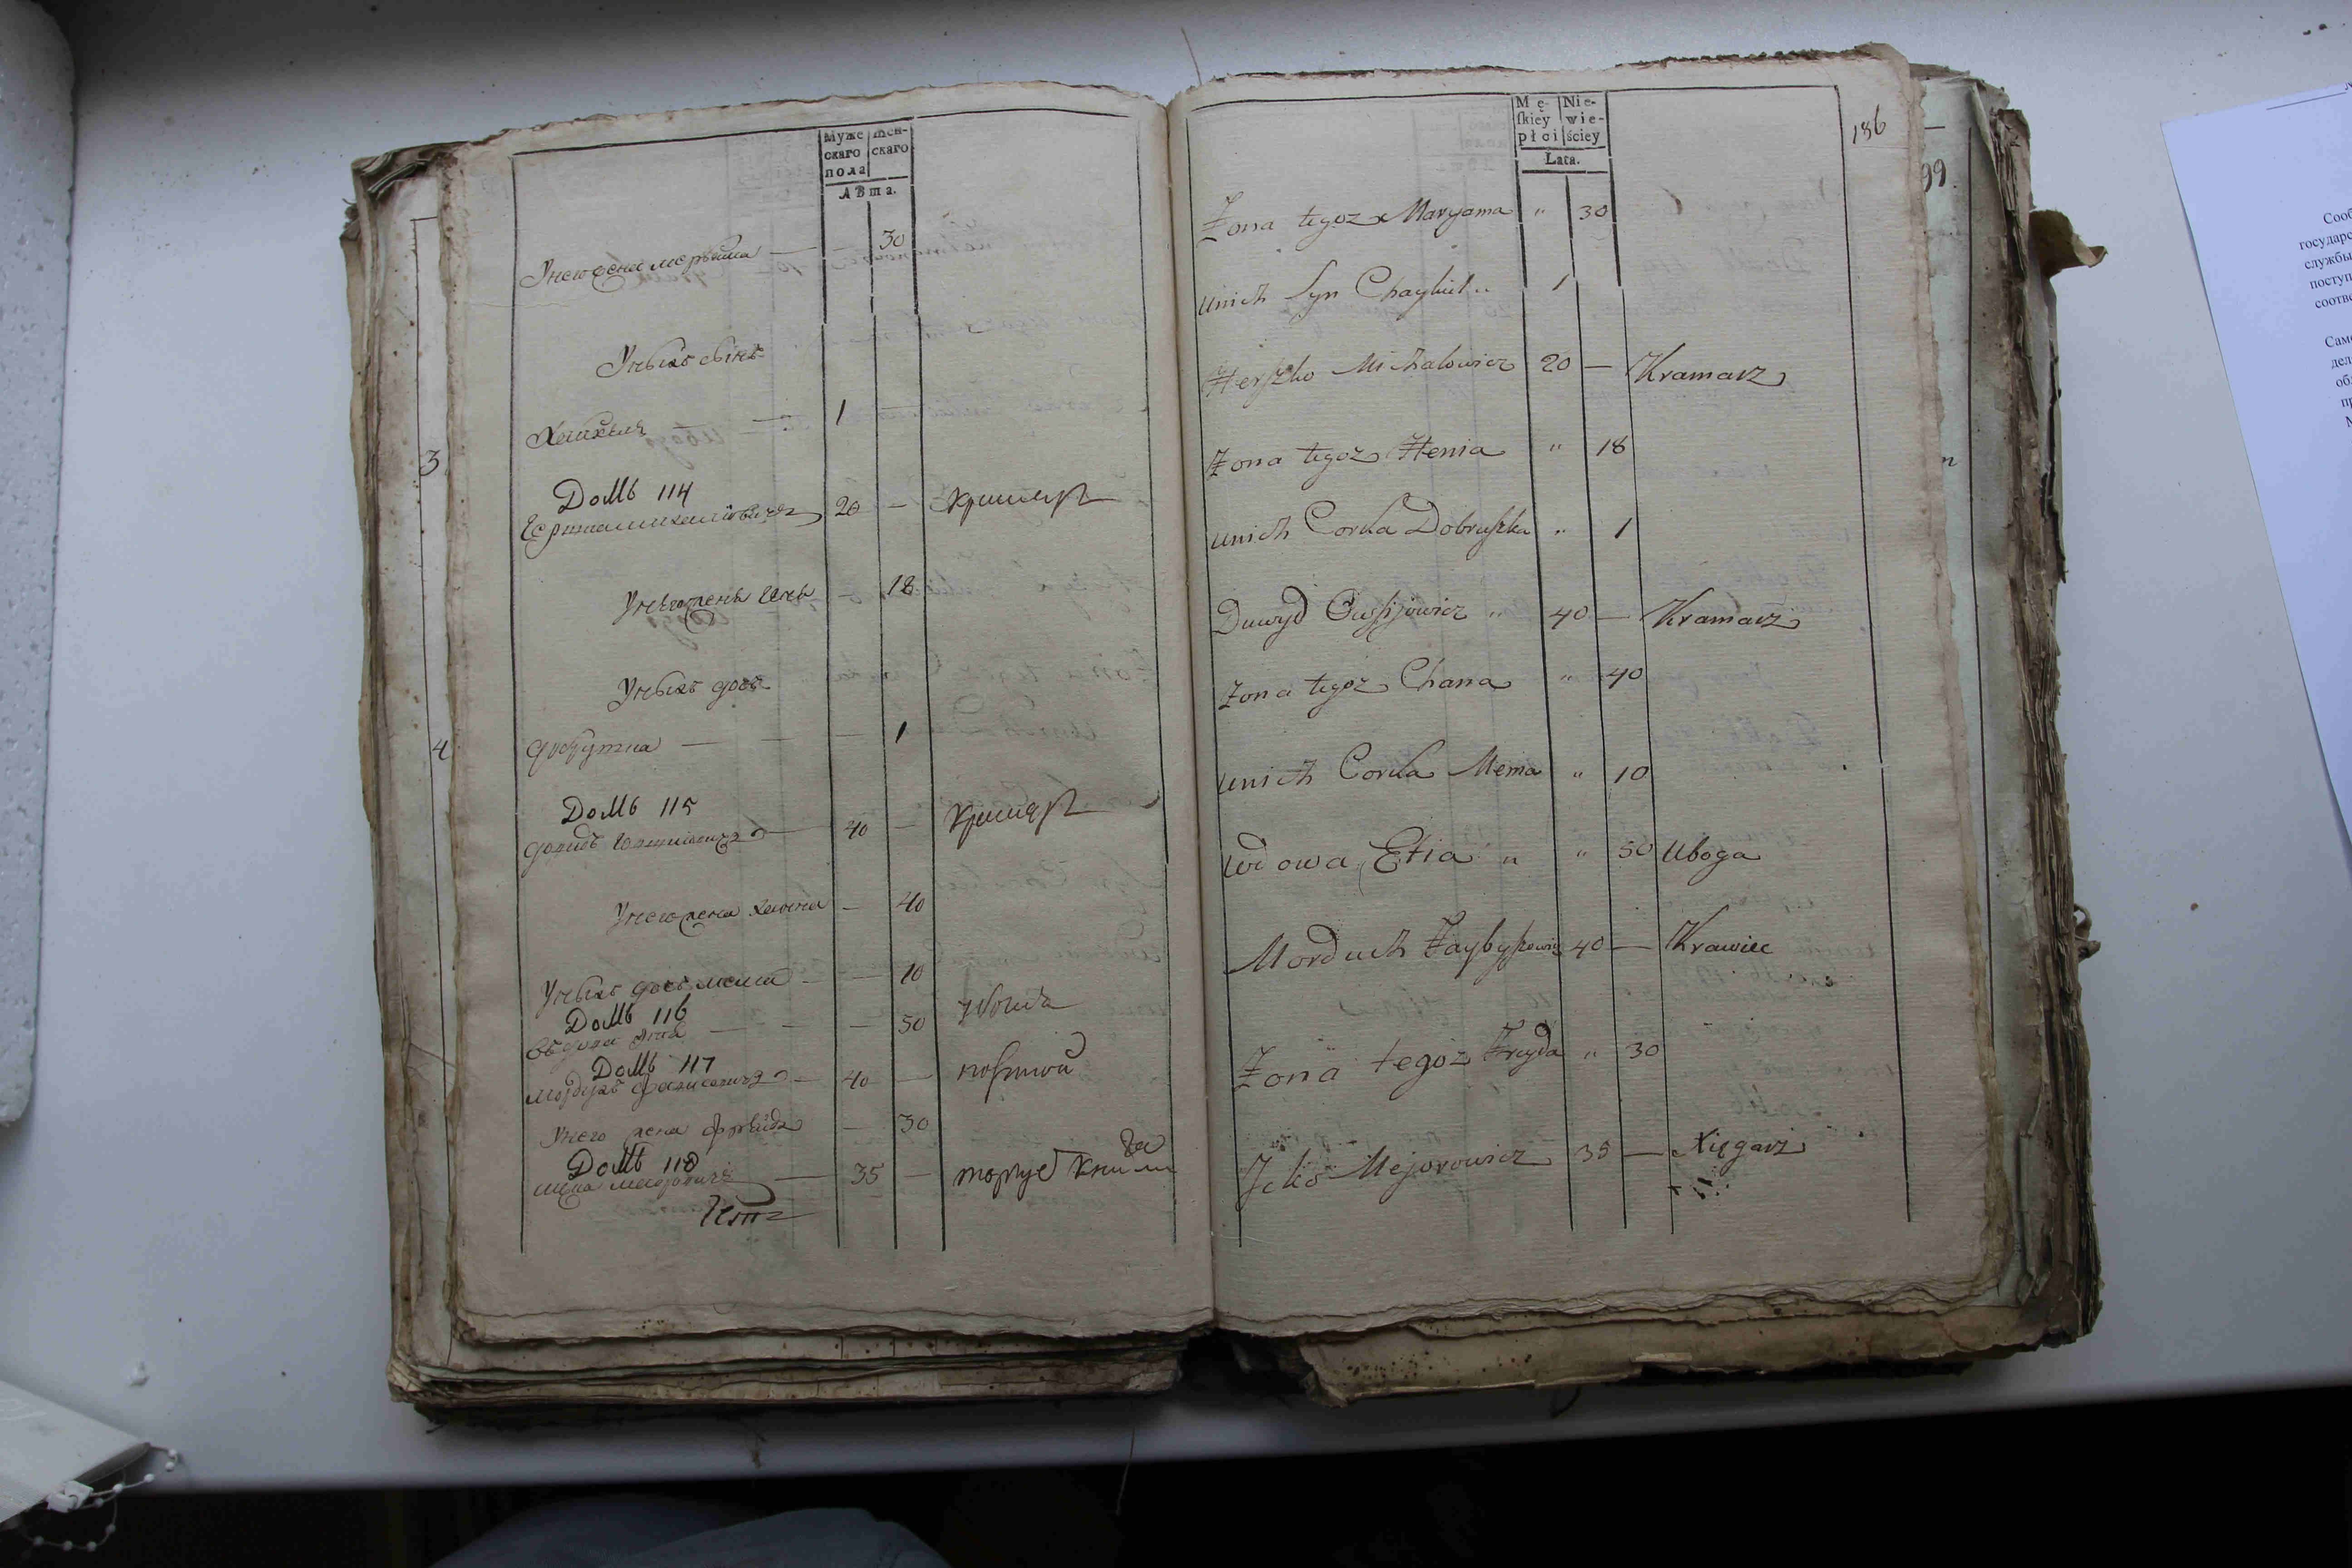 Муже
скаго
пола
жен-
скаго
лѣта.
У него жена марьяма — 30
У ныхъ сынъ
Хаикель — 1 —
Домъ 114
Гершка михалювичъ 20 — крамаръ
У него жена геня — 18
У ныхъ дочь
добрушка — — — 1
Домъ 115
давидъ 40 — крамаръ
У него жена хаина — 40
У ныхъ дочь мема — — 10
Домъ 116
въдова этя — — — 50 убога
Домъ 117
мордухъ 40 — портной
У него жена фрейда — 30
Домъ 118
ицка меюровичъ — 35 — торгуе книгами
3
4
Mę-
skiey
płci
Nie-
wie-
ściey
Lata.
186
99
Żona tegoż Maryama " 30
unich Syn Chaykiel " 1
Herszko Michalowicz 20 — Kramarz
Żona tegoż Henia " 18
unich Corka Dobruszka " 1
Dawyd Owsijowicz " 40 — Kramarz
Żona tegoż Chana " 40
unich Corka Mema " 10
Wdowa Etia " " 50 Uboga
Morduch 40 — Krawiec
Żona tegoż Freyda " 30
Icko Mejorowicz 35 — Xięgarz
Сооб
государс
службы
поступ
соотве
Само
дел
об
пр